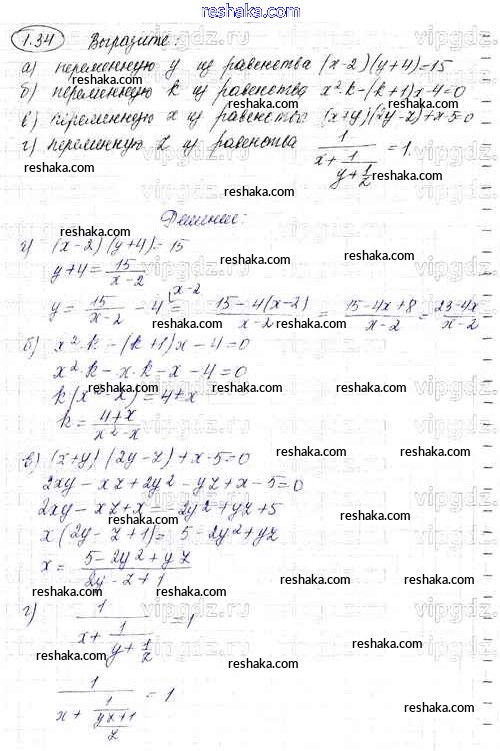 www.reshaka.com
1.34 Выразите:
а) переменную y из равенства (x-2)(y+4)=15
б) переменную k из равенства x²k-(k+1)x-4=0
в) переменную x из равенства (x+y)(2y-z)+x-5=0
г) переменную z из равенства 1/(x+1/(y+1/z)) = 1.
Решение:
а) (x-2)(y+4)=15
y+4 = 15/(x-2)
y = 15/(x-2) - 4 = (15-4(x-2))/(x-2) = (15-4x+8)/(x-2) = (23-4x)/(x-2)
б) x²·k-(k+1)x-4=0
x²·k-x·k-x-4=0
k(x²-x)=4+x
k = (4+x)/(x²-x)
в) (x+y)(2y-z)+x-5=0
2xy-xz+2y²-yz+x-5=0
2xy-xz+x=-2y²+yz+5
x(2y-z+1)=5-2y²+yz
x = (5-2y²+yz)/(2y-z+1)
г) 1/(x+1/(y+1/z)) = 1
1/(x+1/((yz+1)/z)) = 1